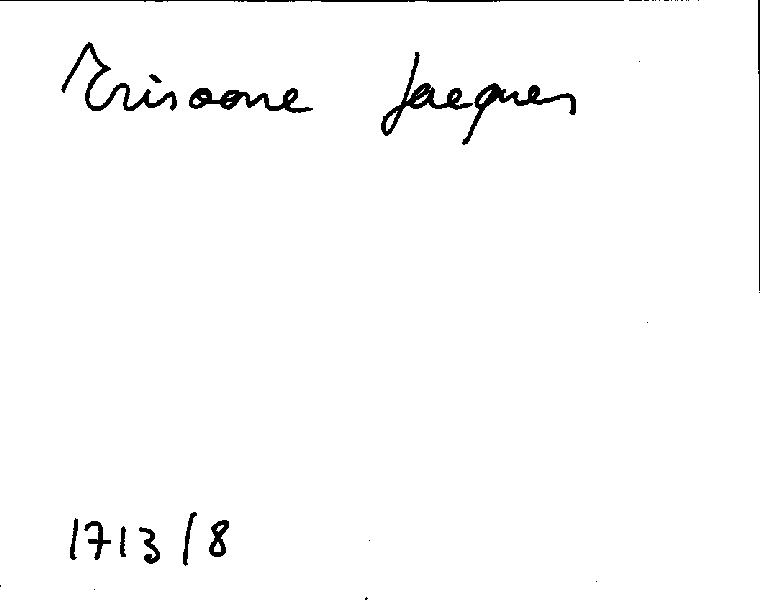 Trisoone Jacques
1713/8